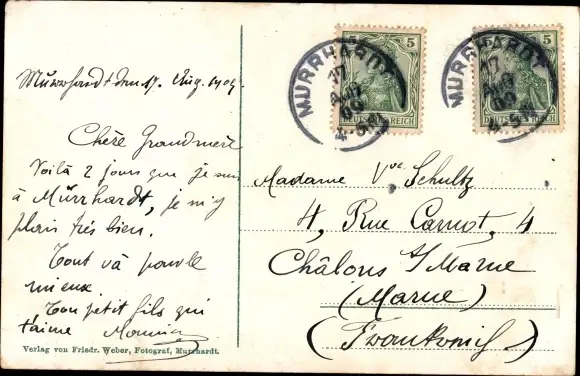 Murrhardt den 17. Aug. 1909.
Chère Grandmère
Voilà 2 jours que je suis
à Mürrhardt, je m'y
plais très bien.
Tout va pour le
mieux.
Ton petit fils qui
t'aime
Verlag von Friedr. Weber, Fotograf, Murrhardt.
MURRHARDT
17
AUG
09
DEUTSCHES REICH
5
MURRHARDT
17
AUG
09
DEUTSCHES REICH
5
Madame Vve Schultz
4, Rue Carnot, 4
Châlons s/ Marne
(Marne)
(Frankreich)